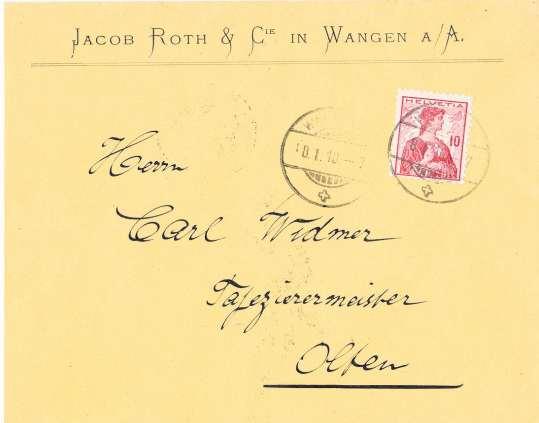 JACOB ROTH & CIE IN WANGEN A/A.
HELVETIA
10
Herrn
Carl Widmer
Tapezierermeister
Olten